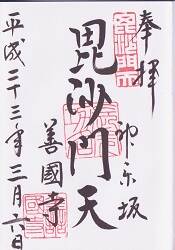 奉拝
神楽坂
毘沙門天
善國寺
平成二十三年三月六日